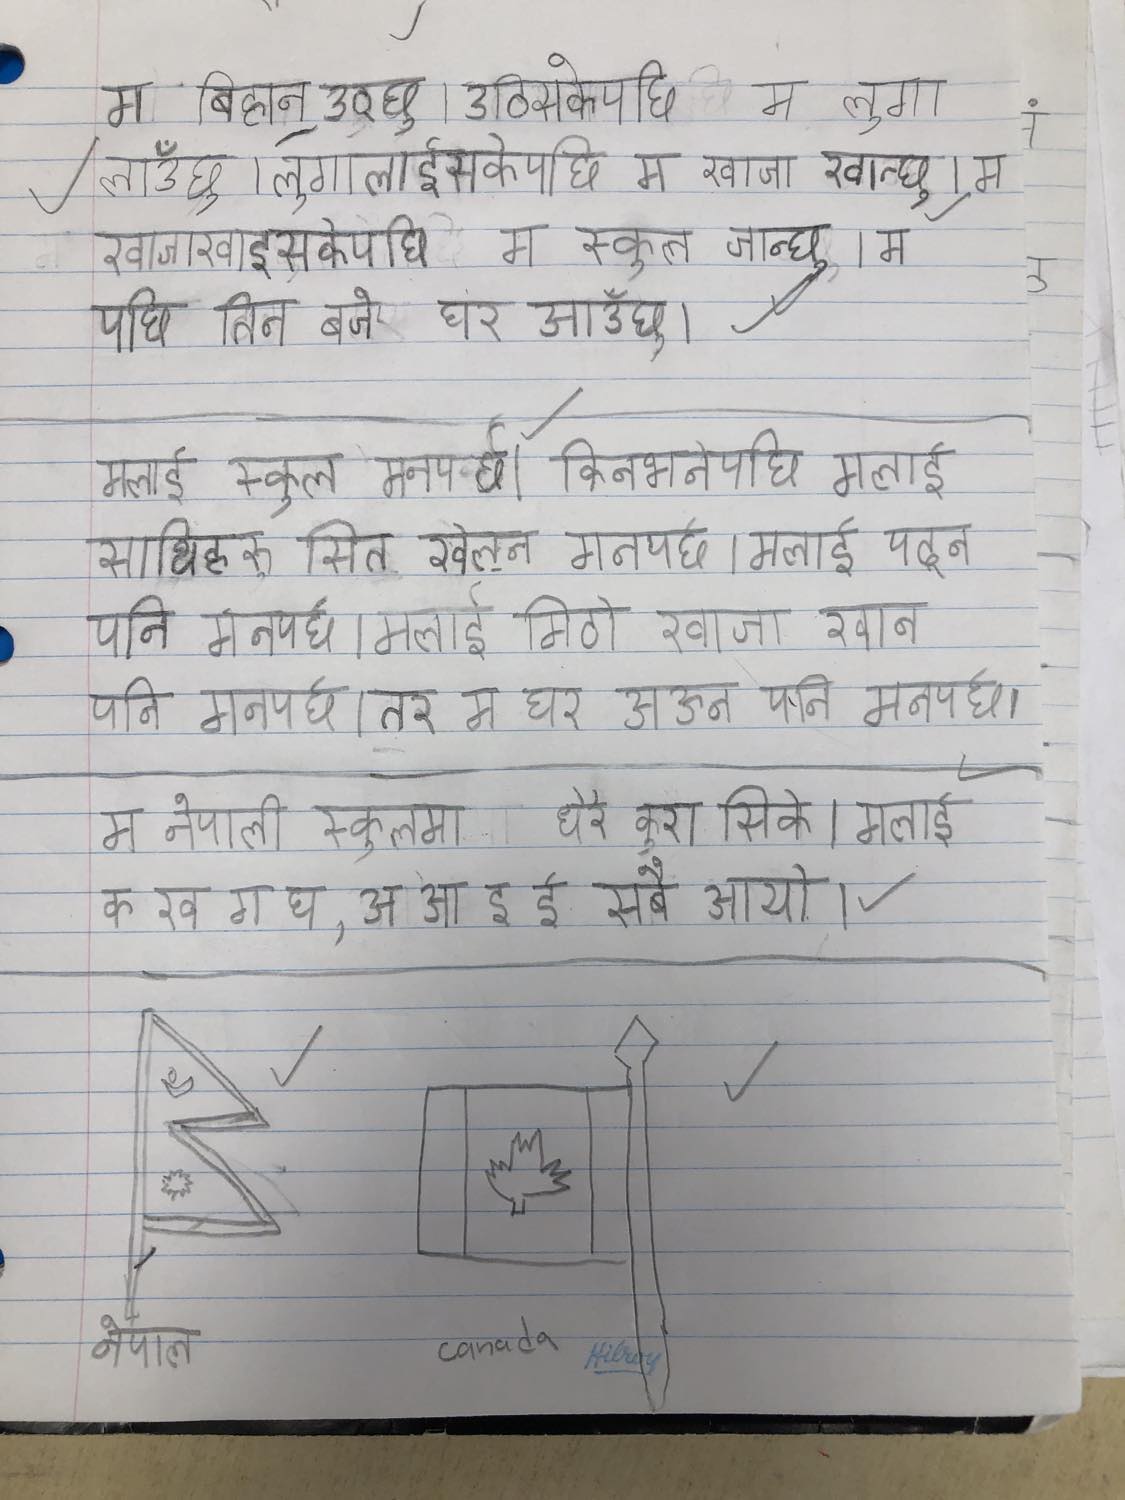 म बिहान उठ्छु । उठिसकेपछि म लुगा
लाउँछु । लुगालाईसकेपछि म खाजा खान्छु । म
खाजाखाइसकेपछि म स्कुल जान्छु । म
पछि तिन बजे घर आउँछु ।
मलाई स्कुल मनपर्छ । किनभनेपछि मलाई
साथिहरु सित खेल्न मनपर्छ । मलाई पढ्न
पनि मनपर्छ । मलाई मिठो खाजा खान
पनि मनपर्छ । तर म घर अऊन पनि मनपर्छ ।
म नेपाली स्कुलमा धेरै कुरा सिके । मलाई
क ख ग घ, अ आ इ ई सबै आयो ।
नेपाल
canada
Hilroy